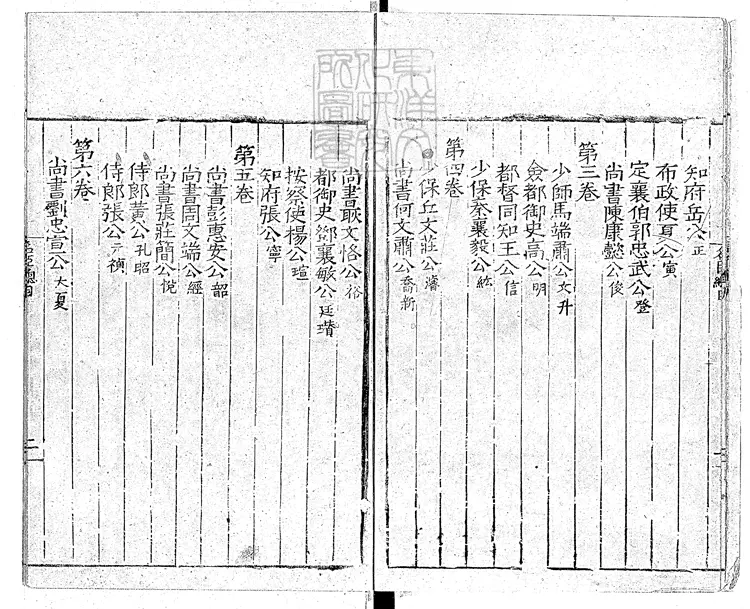 知府岳公正
布政使夏公寅
定襄伯郭忠武公登
尚書陳康懿公俊
第三卷
少師馬端肅公文升
僉都御史高公明
都督同知王公信
少保秦襄毅公紘
第四卷
少保丘文莊公濬
尚書何文肅公喬新
尚書耿文恪公裕
都御史鄧襄敏公廷瓚
按察使楊公瑄
知府張公寧
第五卷
尚書彭惠安公韶
尚書周文端公經
尚書張莊簡公悅
侍郎黃公孔昭
侍郎張公元禎
第六卷
尚書劉忠宣公大夏
二